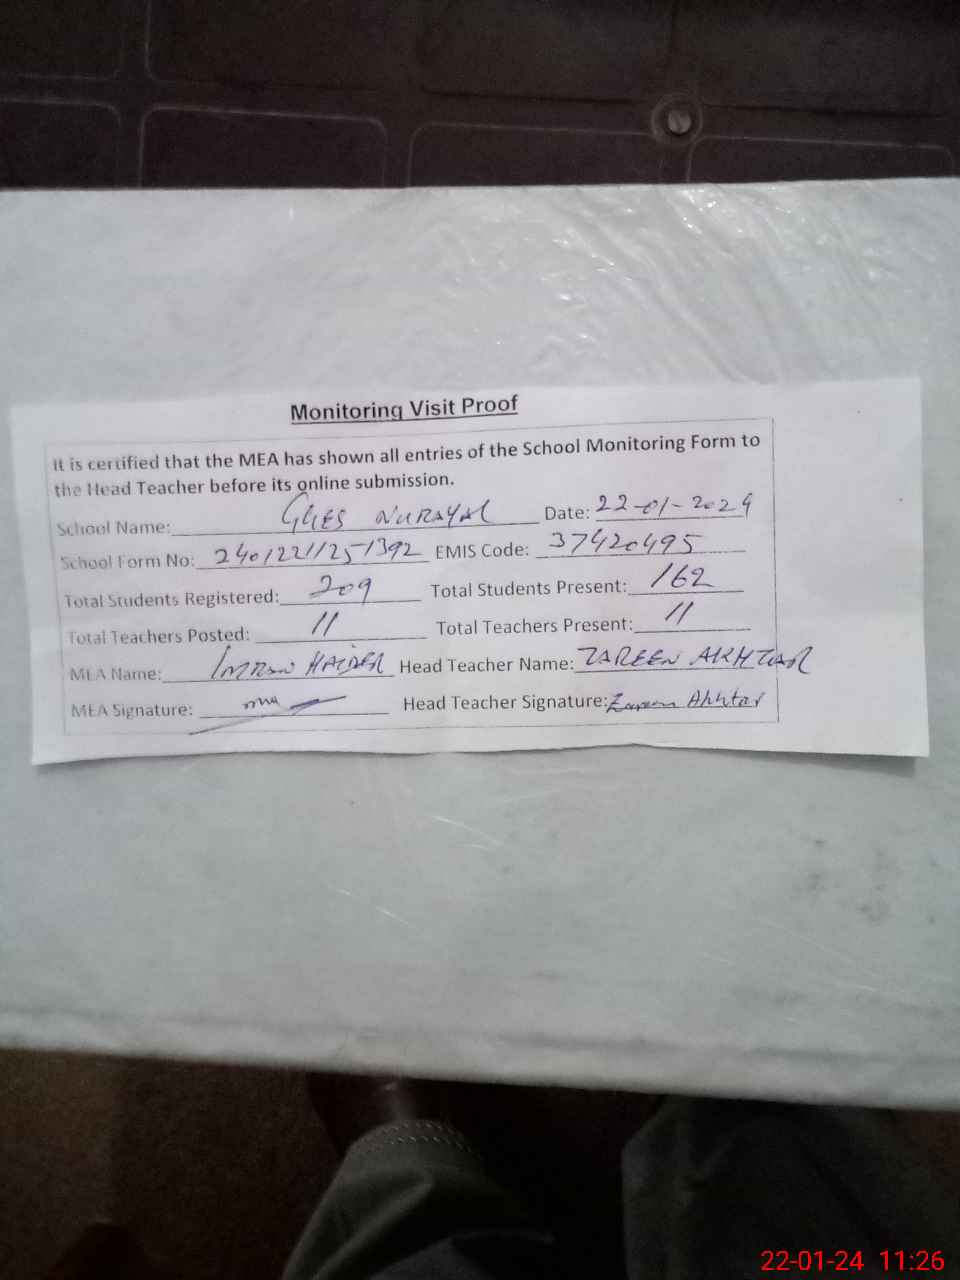 Monitoring Visit Proof
It is certified that the MEA has shown all entries of the School Monitoring Form to
the Head Teacher before its online submission.
School Name: GGES NURAYAL Date: 22-01-2024
School Form No: 24012211251392 EMIS Code: 37420495
Total Students Registered: 209 Total Students Present: 162
Total Teachers Posted: 11 Total Teachers Present: 11
MEA Name: IMRAN HAIDER Head Teacher Name: ZAREEN AKHTAR
MEA Signature: Head Teacher Signature: Zareen Akhtar
22-01-24 11:26